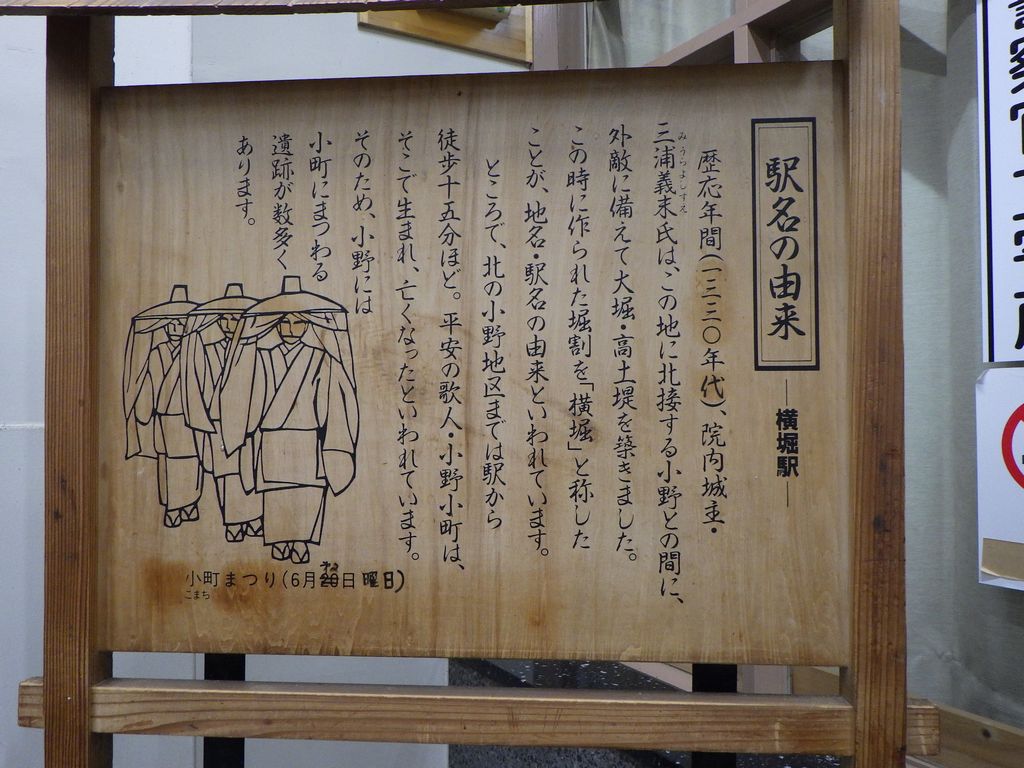 駅名の由来
―横堀駅―
歴応年間(一三三〇年代)、院内城主・
三浦義末氏は、この地に北接する小野との間に、
みうらよしすえ
外敵に備えて大堀・高土堤を築きました。
この時に作られた堀割を「横堀」と称した
ことが、地名・駅名の由来といわれています。
ところで、北の小野地区までは駅から
徒歩十五分ほど。平安の歌人・小野小町は、
そこで生まれ、亡くなったといわれています。
そのため、小野には
小町にまつわる
遺跡が数多く
あります。
小町まつり(6月 日曜日)
こまち